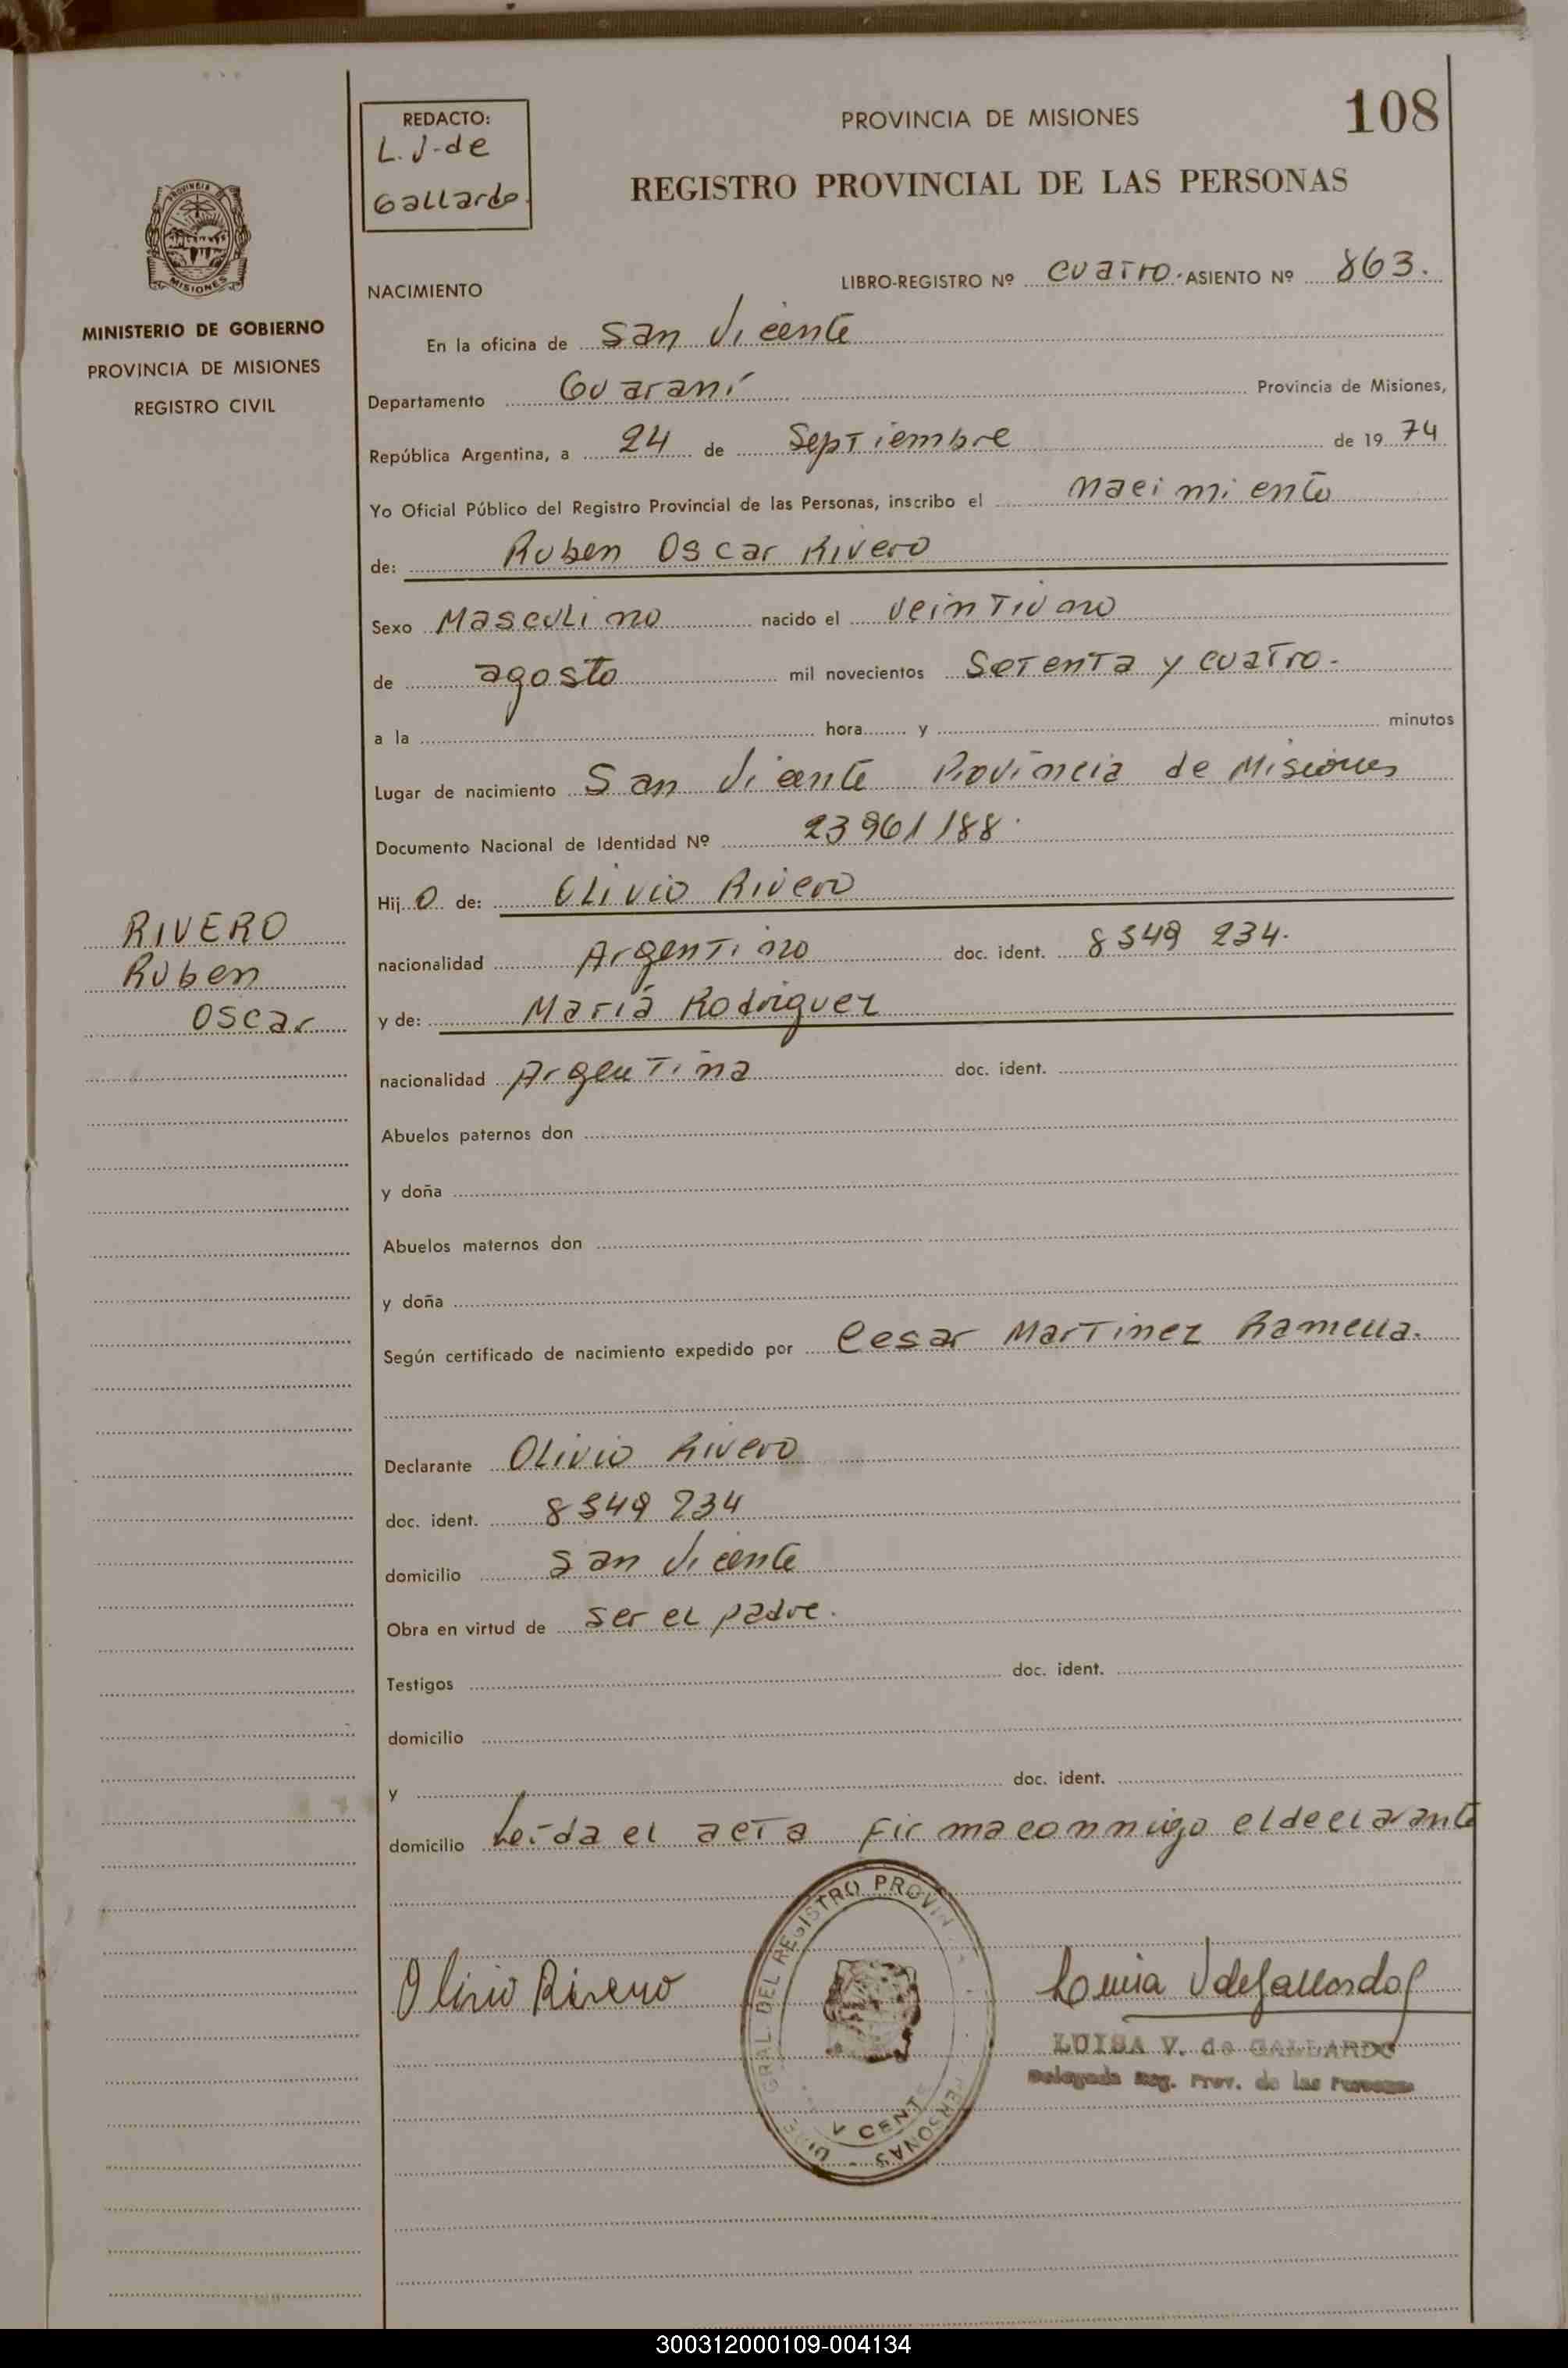 108
REDACTO:
L. J-de
Gallardo.
PROVINCIA DE MISIONES
REGISTRO PROVINCIAL DE LAS PERSONAS
PROVINCIA DE
MISIONES
MINISTERIO DE GOBIERNO
PROVINCIA DE MISIONES
REGISTRO CIVIL
NACIMIENTO
LIBRO-REGISTRO Nº cuatro. ASIENTO Nº 863.
En la oficina de San Vicente
Departamento Guaraní Provincia de Misiones,
República Argentina, a 24 de Septiembre de 1974
Yo Oficial Público del Registro Provincial de las Personas, inscribo el nacimiento
de: Ruben Oscar Rivero
Sexo Masculino nacido el veintiuno
de agosto mil novecientos setenta y cuatro.
a la hora y minutos
Lugar de nacimiento San Vicente Provincia de Misiones
Documento Nacional de Identidad Nº 23961188.
Hijo de: Olivio Rivero
nacionalidad Argentino doc. ident. 8349 234.
y de: María Rodriguez
nacionalidad Argentina doc. ident.
RIVERO
Ruben
Oscar
Abuelos paternos don
y doña
Abuelos maternos don
y doña
Según certificado de nacimiento expedido por Cesar Martinez Ramella.
Declarante Olivio Rivero
doc. ident. 8349 234
domicilio San Vicente
Obra en virtud de ser el padre.
Testigos doc. ident.
domicilio
y doc. ident.
domicilio Leída el acta firma conmigo el declarante
Olivio Rivero
GRAL. DEL REGISTRO PROVIN
PERSONAS
Luisa V de Gallardo
LUISA V. de GALLARDO
Delegada Reg. Prov. de las Personas
300312000109-004134